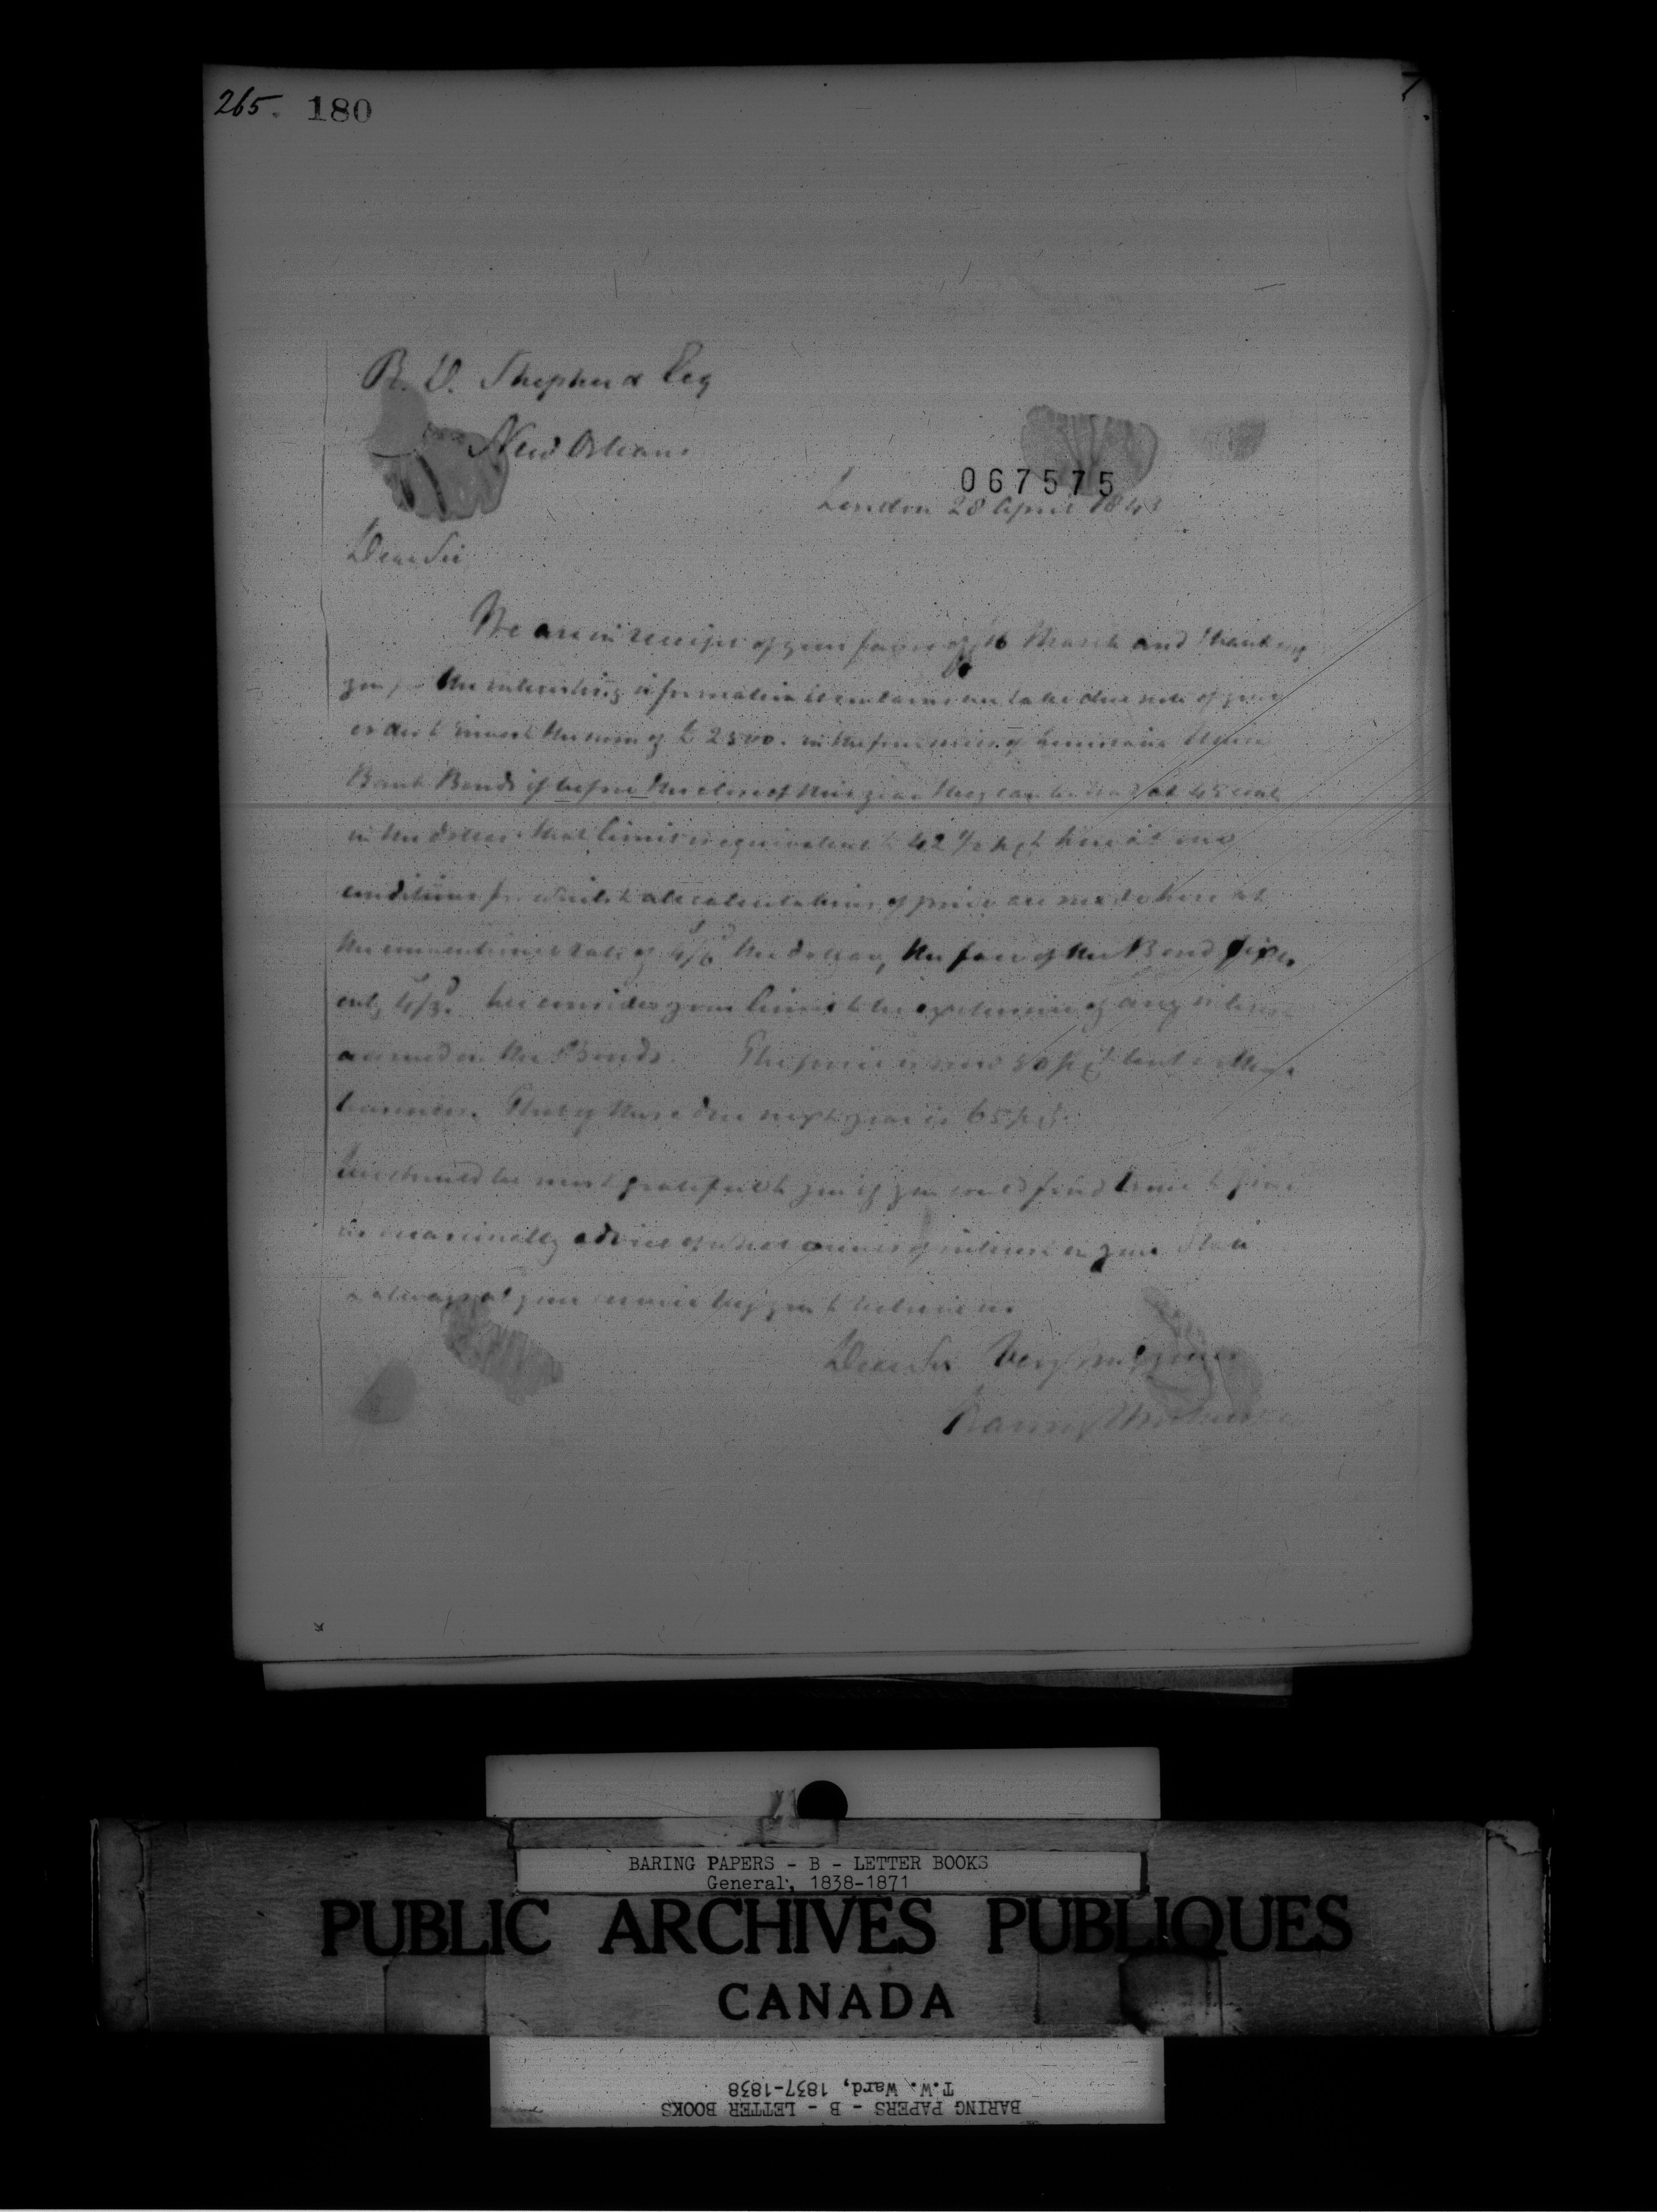 265. 180
R. D. Shepherd Esq
New Orleans
067575
London 28 April 1843
Dear Sir
We are in receipt of your favor of 16 March and thanking
you for the interesting information it contains we take due note of your
order to invest the sum of £ 2500. in the four series of Louisiana Union
Bank Bonds if before the close of this year they can be had at 45 cents
in the dollar. that limit is equivalent to 42 1/2 p Ct here
conditions for whilst all calculations of price are made here at
the conventional rate of 4/6 the dollar, the face of the Bond fixes
only 4/3. We consider your limit to be exclusive of any interest
accrued on the Bonds. The price is now 50 p Ct but
business. That of those due next year is 65 p Ct.
We should be most grateful to you if you could find time to give
us occasionally advice of what occurs of interest in your State
& always at your service beg you to believe us
Dear Sir Very truly yours
Baring Brothers & Co
BARING PAPERS - B - LETTER BOOKS
General, 1838-1871
PUBLIC ARCHIVES PUBLIQUES
CANADA
BARING PAPERS - B - LETTER BOOKS
T.W. Ward, 1837-1838